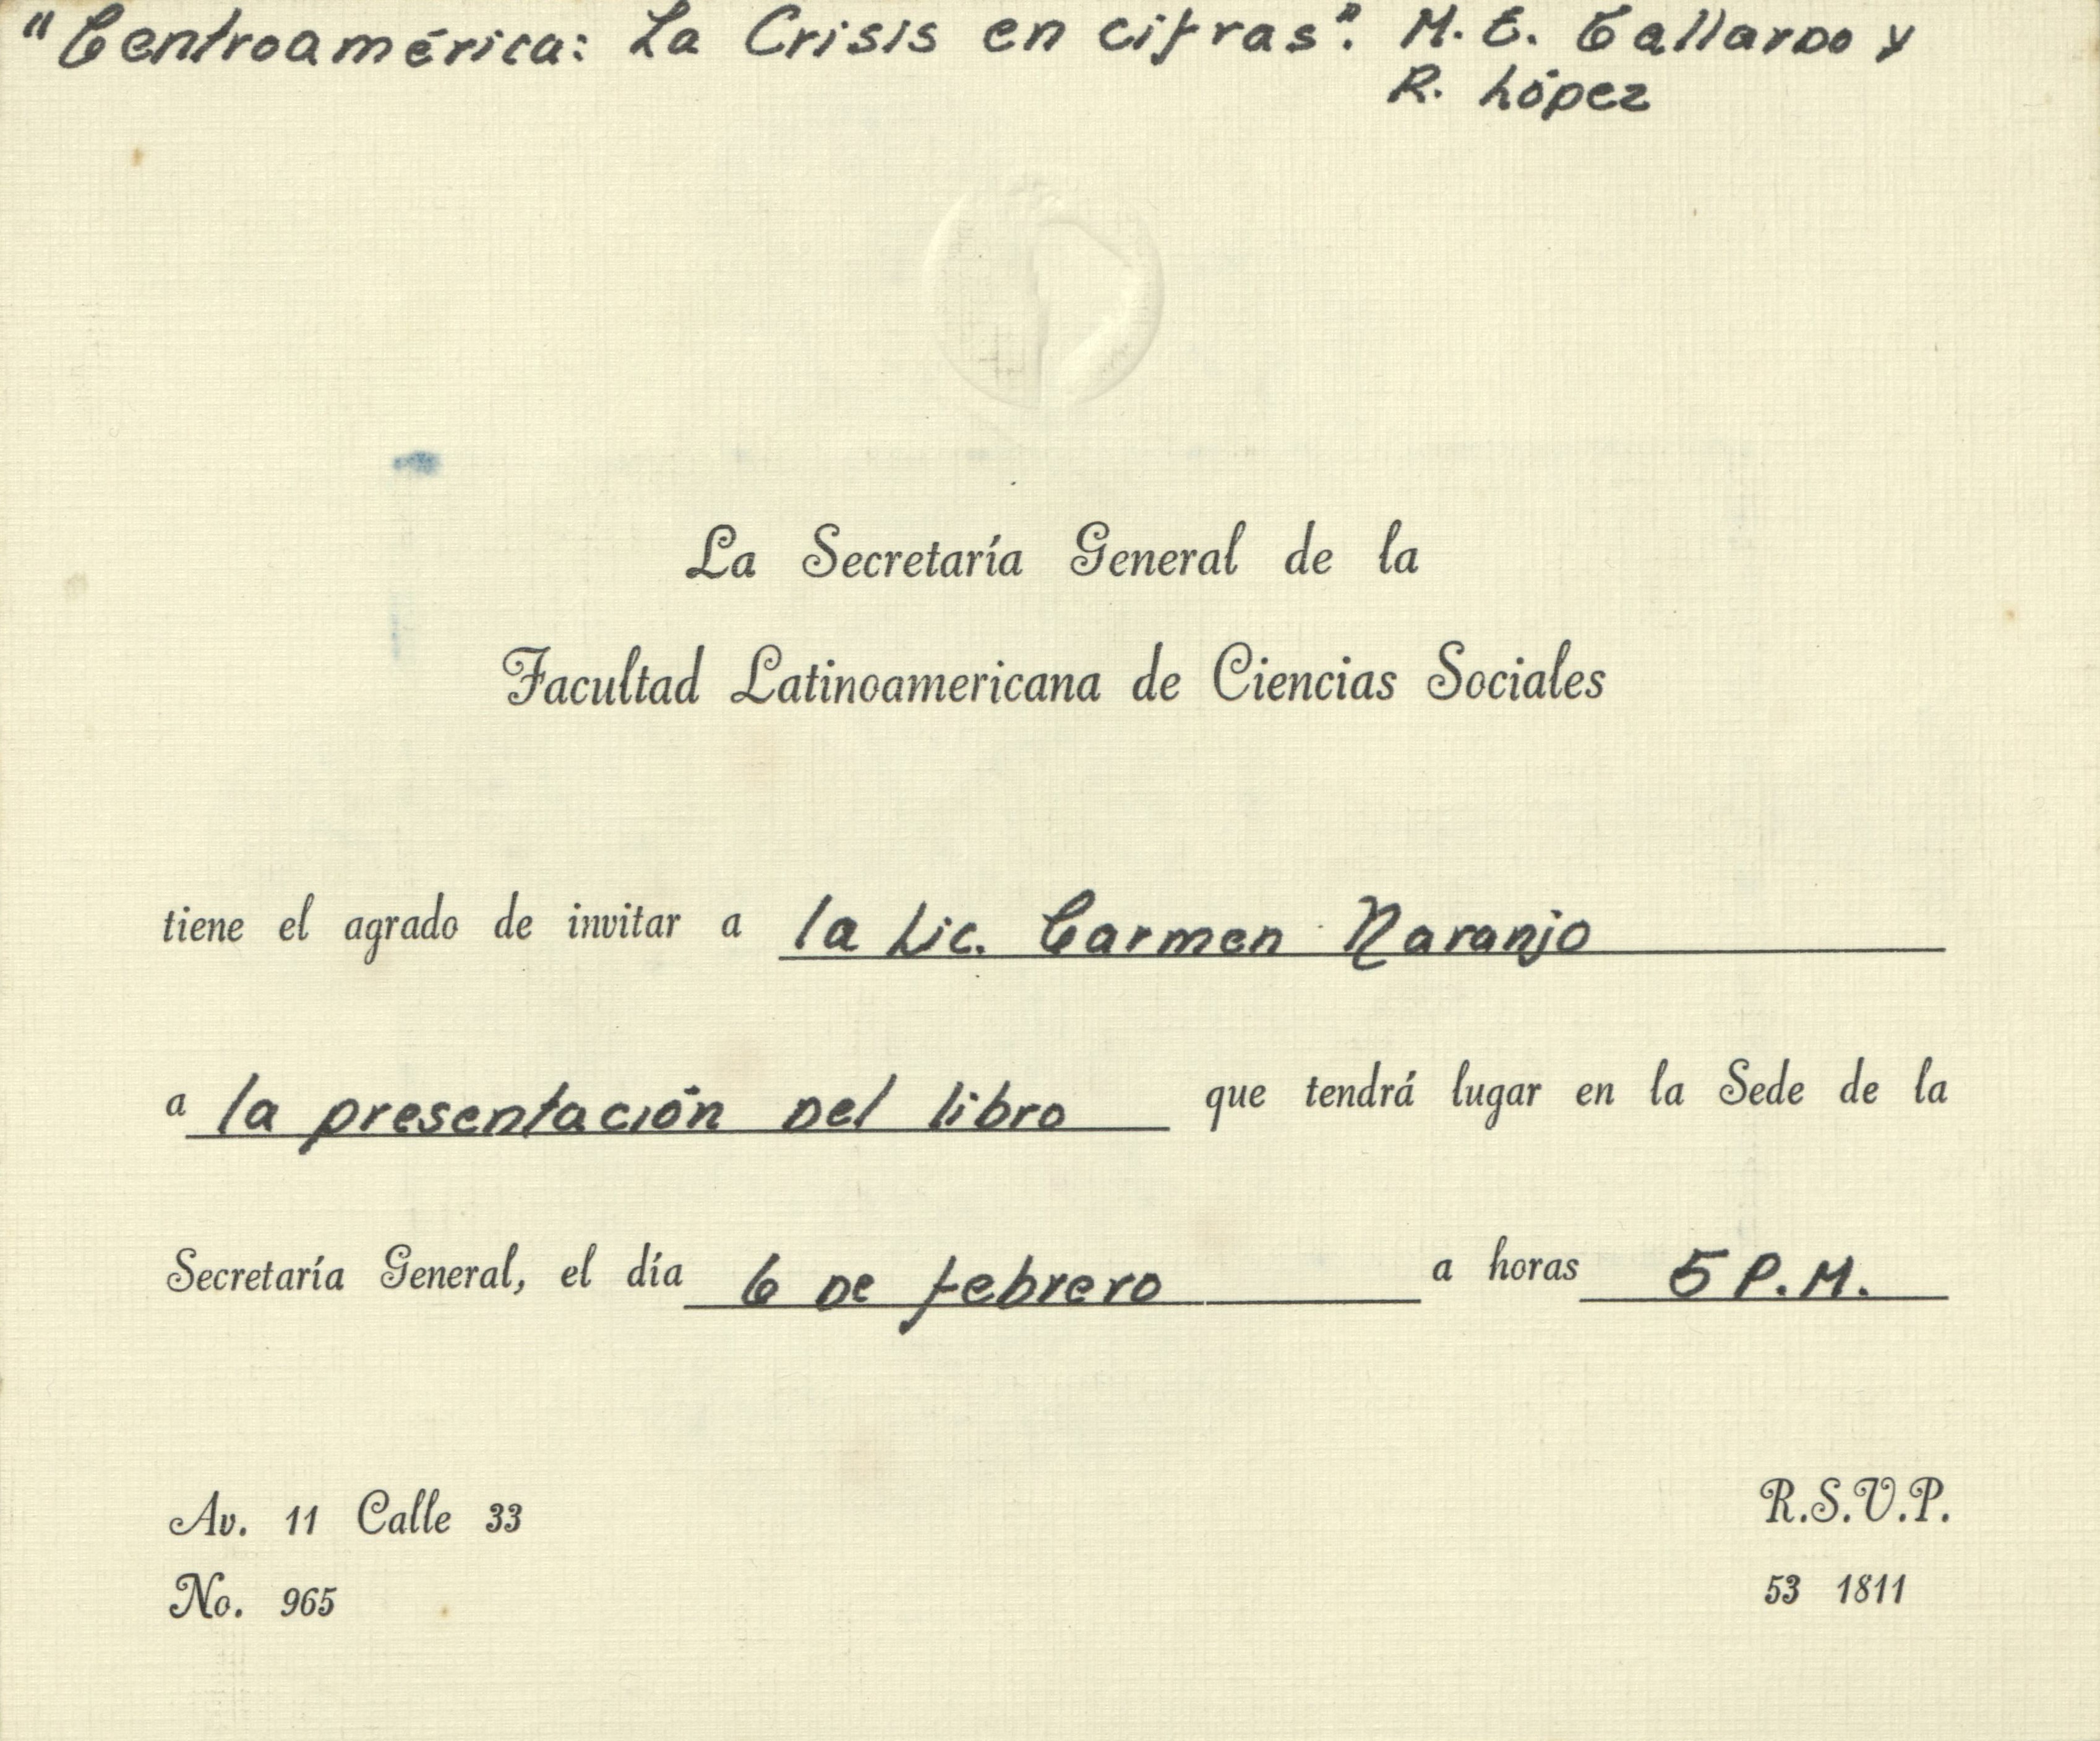 "Centroamérica: La Crisis en cifras". M. E. Gallardo y
R. López
La Secretaría General de la
Facultad Latinoamericana de Ciencias Sociales
tiene el agrado de invitar a la Lic. Carmen Naranjo
a la presentación del libro que tendrá lugar en la Sede de la
Secretaría General, el día 6 de febrero a horas 5 P.M.
Av. 11 Calle 33
No. 965
R.S.V.P.
53 1811